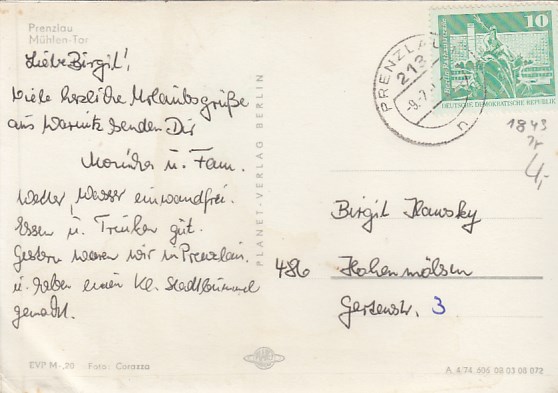 Prenzlau
Mühlen-Tor
Liebe Birgit!
Viele herzliche Urlaubsgrüße
aus Warnitz senden Dir
u. Fam.
Wetter, Wasser einwandfrei.
Essen u. Trinken gut.
Gestern waren wir in Prenzlau
u. haben einen kl. Stadtbummel
gemacht.
EVP M-,20 Foto: Corazza
PLANET-VERLAG BERLIN
PRENZLAU
213
-9.7.
n
10
DEUTSCHE DEMOKRATISCHE REPUBLIK
1843
4,-
Birgit Kawsky
486 Hohenmölsen
Gerstenstr. 3
A 4/74 606 03 03 08 072